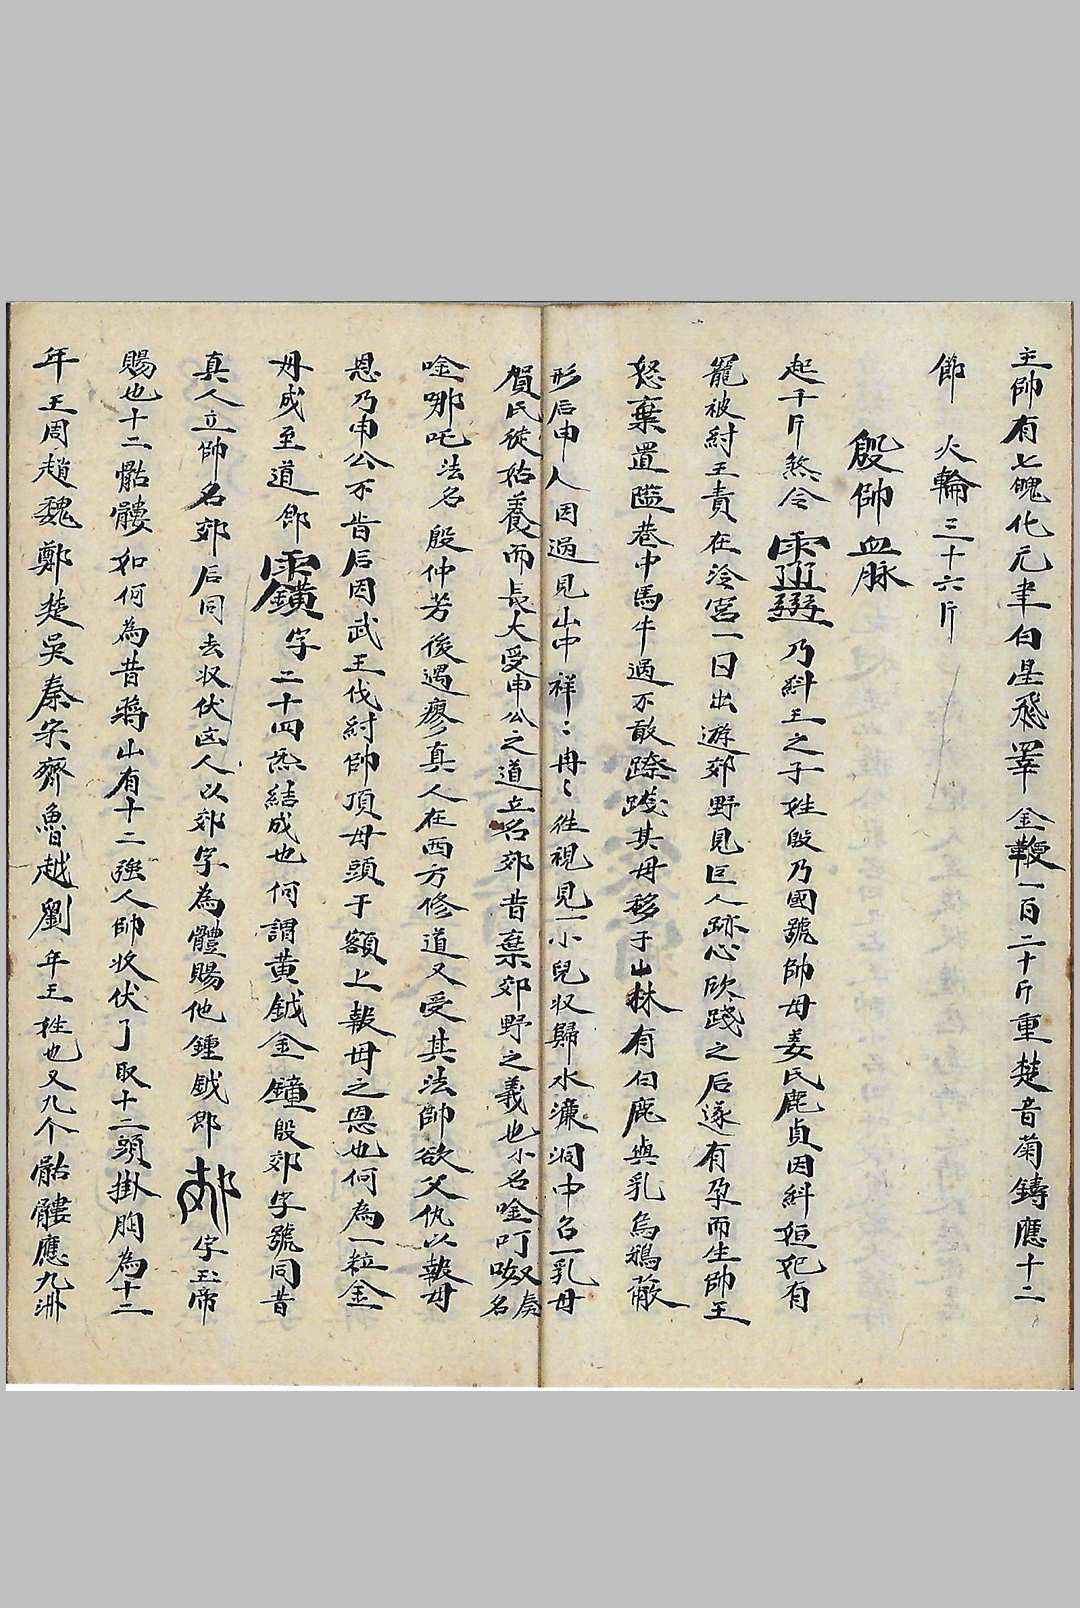 主帥有七魄化元聿白星飛罩金鞭一百二十斤重楚音菊鑄應十二
節 火輪三十六斤
殷帥血脉
起千斤煞令 乃紂王之子姓殷乃國號帥母姜氏鹿貞因紂妲妃有
寵被紂王責在冷宮一日出遊郊野見巨人跡心欣踐之后遂有孕而生帥王
怒棄置隘巷中馬牛過不敢踏踐其母移于山林有白鹿與乳烏鴉蔽
形后申人因過見山中祥〻冉〻徃視見一小兒収歸水濂洞中召一乳母
賀氏徒始養而長大受申公之道立名郊昔棄郊野之義也小名唫叮呶奏名
唫哪吒法名殷仲芳後遇廖真人在西方修道又受其法帥欲父仇以報母
恩乃申公不肯后因武王伐紂帥頂母頭于額上報母之恩也何為一粒金
丹成至道即 字二十四炁結成也何謂黃鉞金鐘殷郊字號同昔
真人立帥名郊后同去収伏凶人以郊字為體賜他鍾鉞即 字玉帝
賜也十二骷髏如何為昔蔣山有十二強人帥收伏了取十二頭掛胸為十二
年王周趙魏鄭楚吳秦宋齊魯越劉年王姓也又九个骷髏應九洲